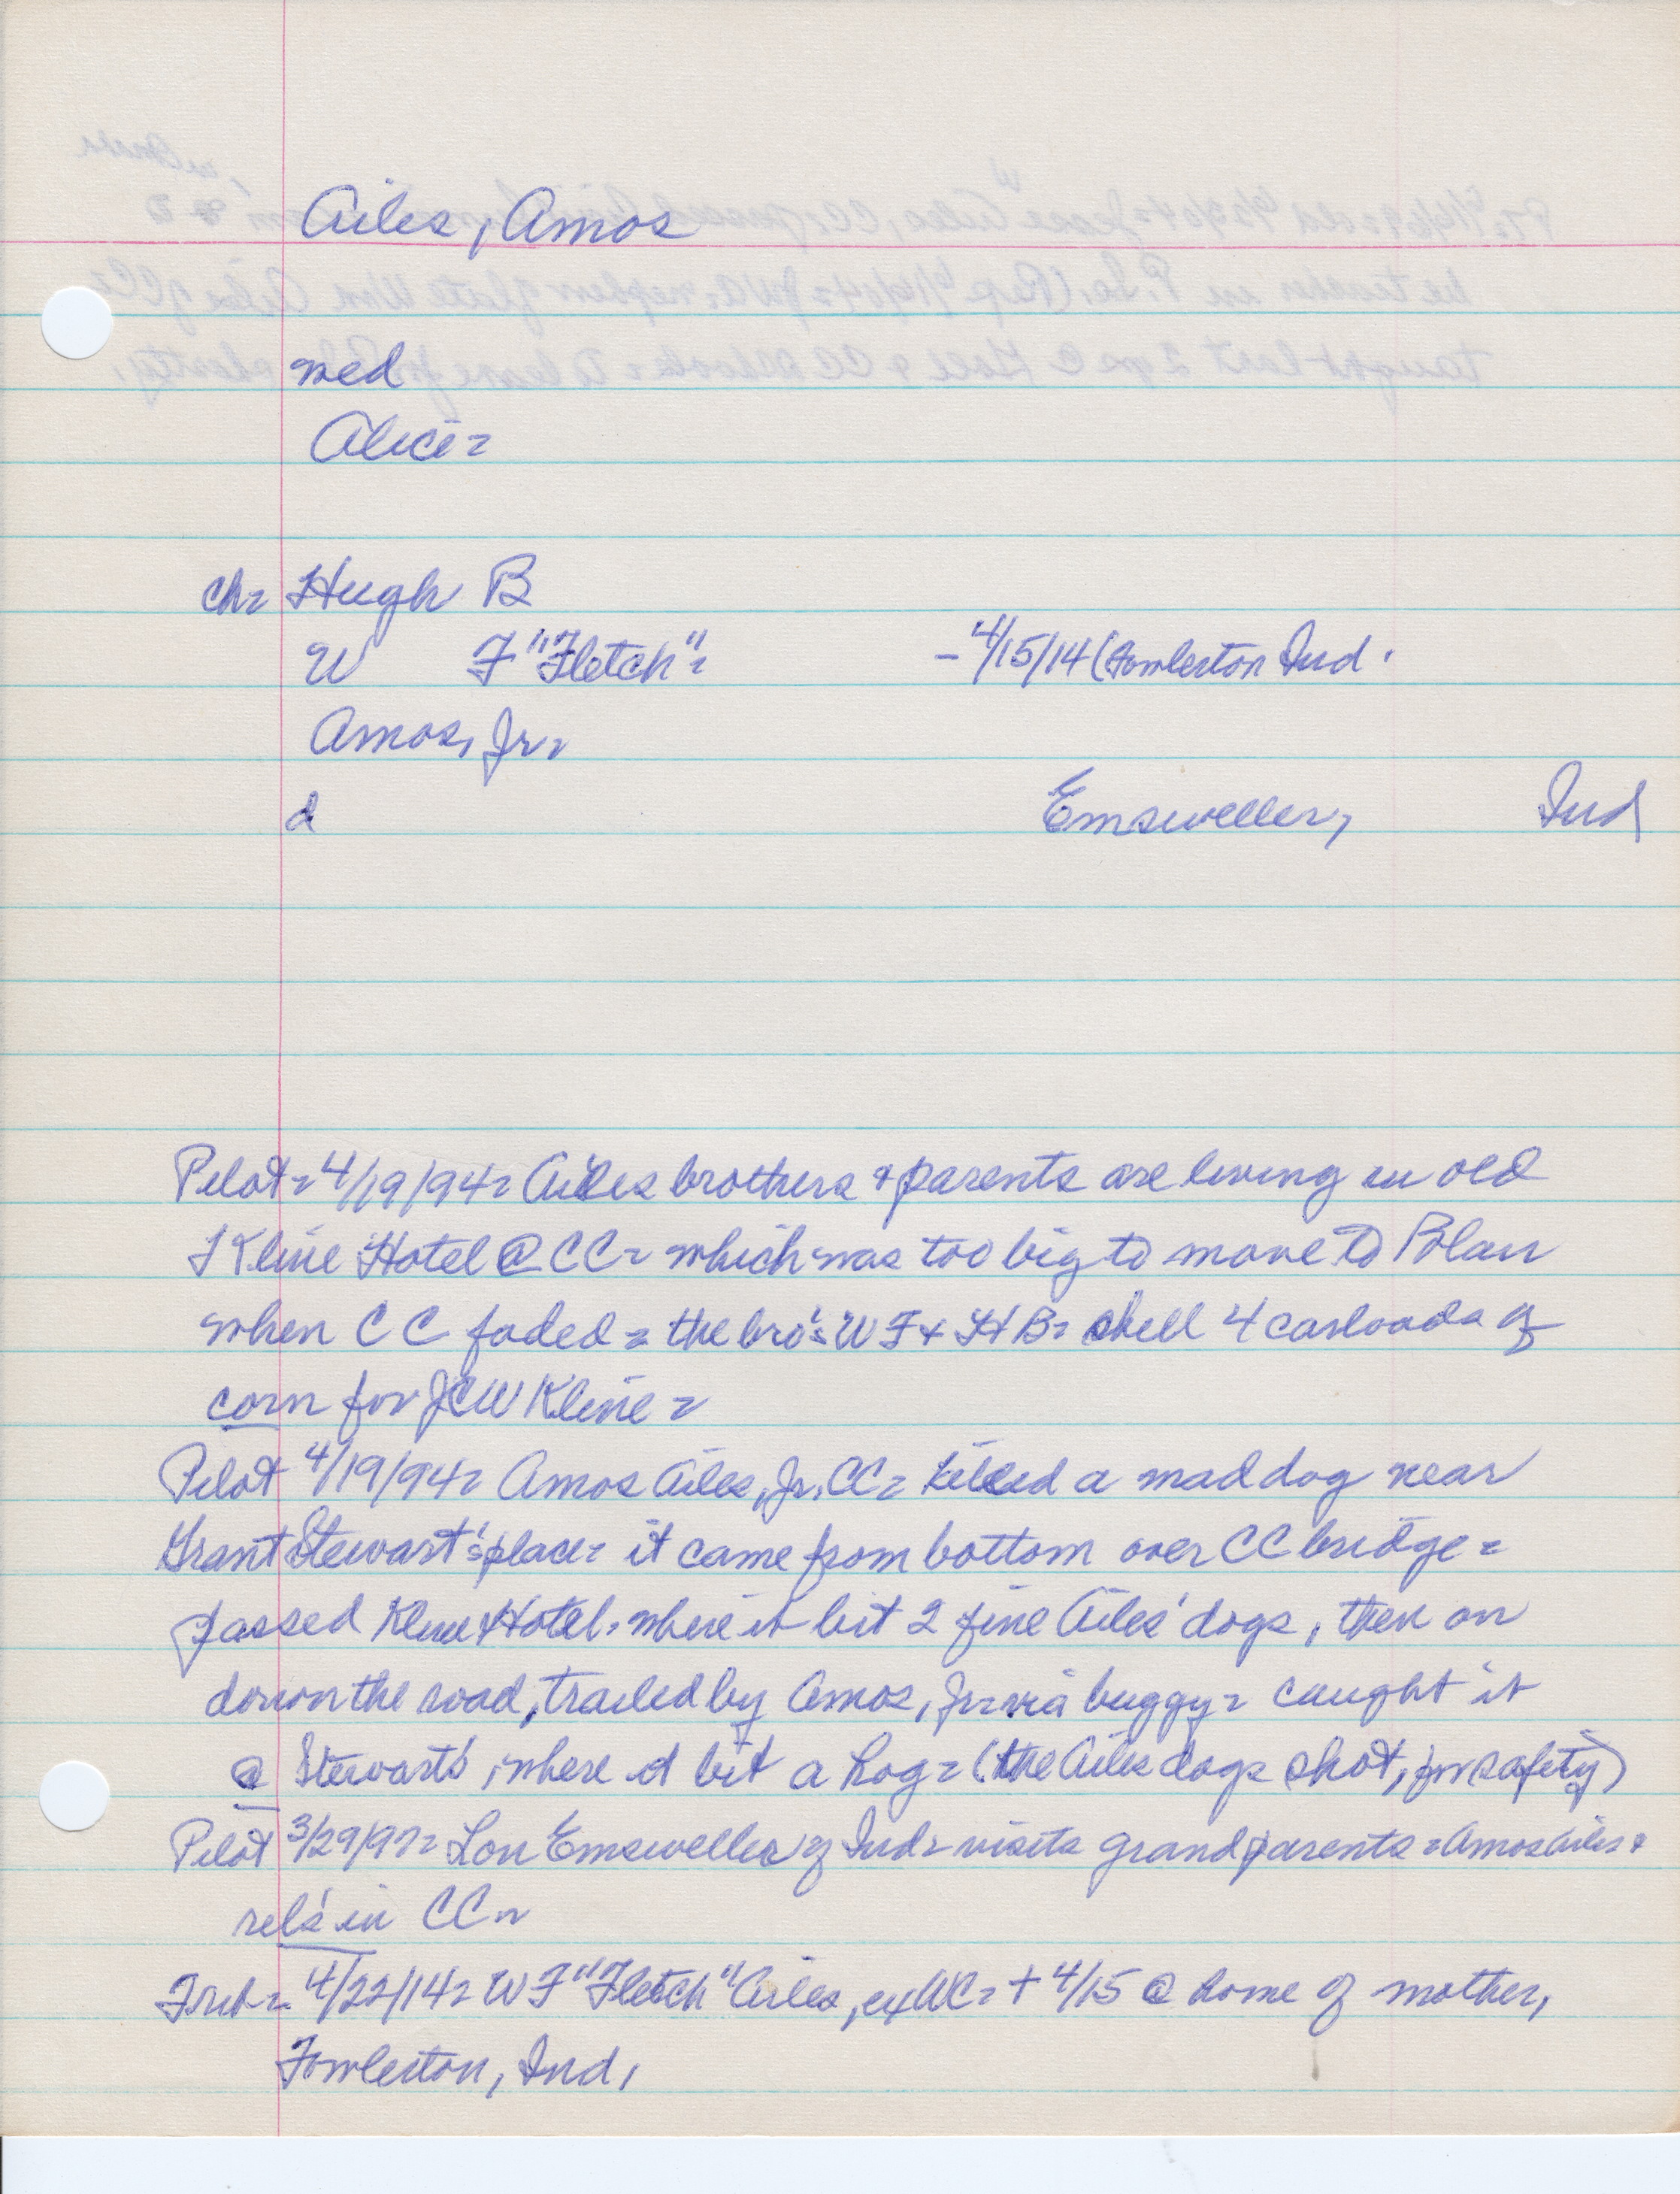 Ailes, Amos
med
Alice=
ch= Hugh B
W F "Fletch"= - 4/15/14 (Fowlerton Ind.
Amos, Jr=
d Emsweller, Ind
Pilot= 4/19/94= Ailes brothers & parents are living in old
J Kline Hotel @ CC= which was too big to move to Polan
when CC faded = the bro's W F & H B= shell 4 carloads of
corn for JCW Kline =
Pilot 4/19/94= Amos Ailes, Jr, CC= killed a mad dog near
Grant Stewart's place= it came from bottom over CC bridge =
passed Kline Hotel, where it bit 2 fine Ailes' dogs, then on
down the road, trailed by Amos, Jr= via buggy= caught it
@ Stewarts', where it bit a hog= (the Ailes dogs shot, for safety)
Pilot 3/29/97= Lon Emsweller of Ind= visits grandparents = Amos Ailes &
rel's in CC=
4/22/14= W F "Fletch" Ailes, ex = + 4/15 @ home of mother,
Fowlerton, Ind,